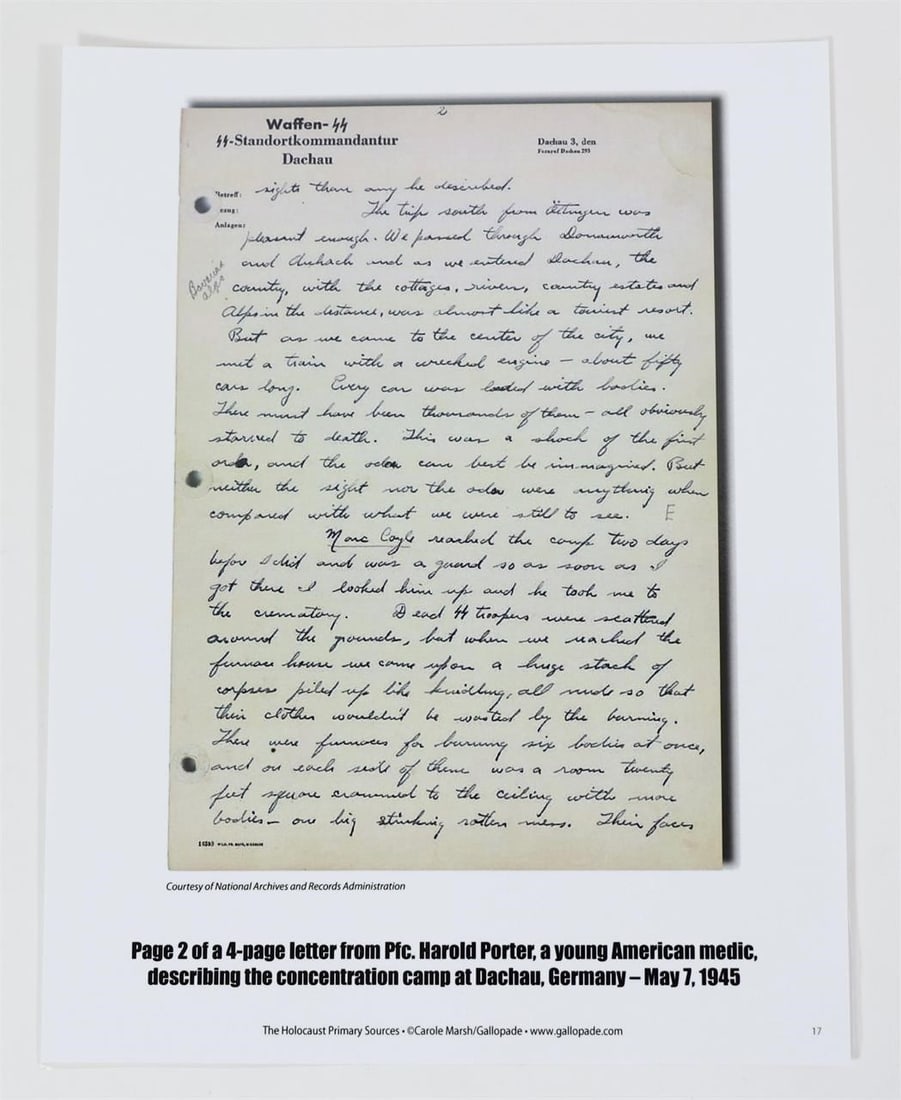 2
Waffen-SS
SS-Standortkommandantur
Dachau
Dachau 3, den
Fernruf Dachau 293
Betreff:
Bezug:
Anlagen:
sights than any he described.
The trip south from Öttingen was
pleasant enough. We passed through Donauworth
and Aichach and as we entered Dachau, the
country, with the cottages, rivers, country estates and
Bavarian
alps
Alps in the distance, was almost like a tourist resort.
But as we came to the center of the city, we
met a train with a wrecked engine — about fifty
cars long. Every car was loaded with bodies.
There must have been thousands of them — all obviously
starved to death. This was a shock of the first
order, and the odor can best be immagined. But
neither the sight nor the odor were anything when
compared with what we were still to see. E
Marc Coyle reached the camp two days
before I did and was a guard so as soon as I
got there I looked him up and he took me to
the crematory. Dead SS troopers were scattered
around the grounds, but when we reached the
furnace house we came upon a huge stack of
corpses piled up like kindling, all nude so that
their clothes wouldn't be wasted by the burning.
There were furnaces for burning six bodies at once,
and on each side of them was a room twenty
feet square crammed to the ceiling with more
bodies — one big stinking rotten mess. Their faces
Courtesy of National Archives and Records Administration
Page 2 of a 4-page letter from Pfc. Harold Porter, a young American medic,
describing the concentration camp at Dachau, Germany – May 7, 1945
The Holocaust Primary Sources • ©Carole Marsh/Gallopade • www.gallopade.com
17